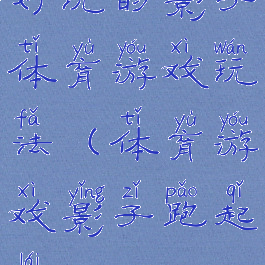 好玩的影子
tǐ yù yóu xì wán
体育游戏玩
fǎ tǐ yù yóu
法（体育游
xì yǐng zǐ pǎo qǐ
戏影子跑起
lái